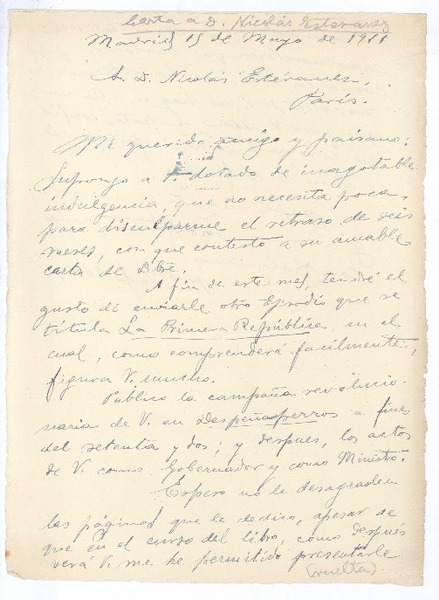 Carta a D. Nicolás Estevanez
Madrid 15 de Mayo de 1911
A. D. Nicolás Estévanez.
París.
Mi querido amigo y paisano:
Supongo a V. dotado de inagotable
indulgencia, que no necesita poca
para disculparme el retraso de seis
meses, con que contesto a su amable
carta de Dbre.
A fin de este mes, tendré el
gusto de enviarle otro Episodio que se
titula La Primera República, en el
cual, como comprenderá facilmente,
figura V. mucho.
Publico la campaña revolucio-
naria de V. en Despeñaperros a fines
del setenta y dos; y despues, los actos
de V. como Gobernador y como Ministro.
Espero no le desagraden
las páginas que le dedico, apesar de
que en el curso del libro, como después
verá V. me he permitido presentarle
(vuelta)